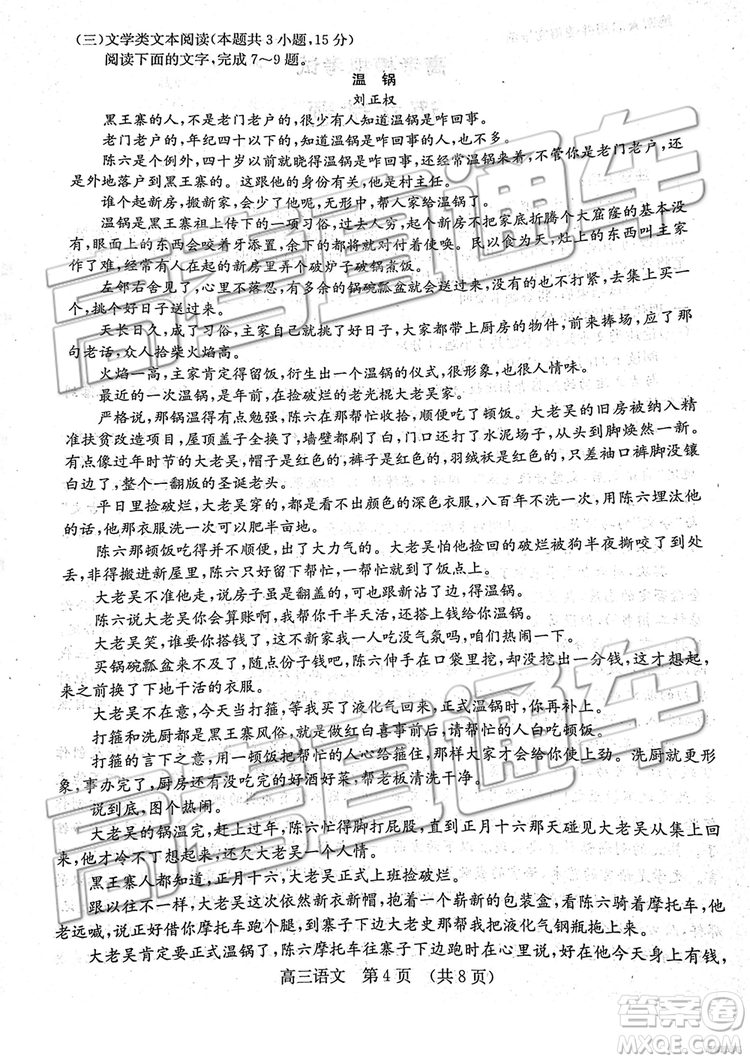 (三)文学类文本阅读(本题共3小题,15分)
阅读下面的文字,完成7～9题。
温 锅
刘正权
黑王寨的人,不是老门老户的,很少有人知道温锅是咋回事。
老门老户的,年纪四十以下的,知道温锅是咋回事的人,也不多。
陈六是个例外,四十岁以前就晓得温锅是咋回事了,还经常温锅来着,不管你是老门老户,还
是外地落户到黑王寨的。这跟他的身份有关,他是村主任。
谁个起新房,搬新家,会少了他呢,无形中,帮人家给温锅了。
温锅是黑王寨祖上传下的一项习俗,过去人穷,起个新房不把家底折腾个大窟窿的基本没
有,眼面上的东西会咬着牙添置,余下的都将就着使唤。民以食为天,灶上的东西叫主家
作了难,经常有人在起的新房里弄个破炉子破锅煮饭。
左邻右舍见了,心里不落忍,有多余的锅碗瓢盆就会送些过来,一个寨子里住着,也不打紧,去集上买一
个,挑个好日子送过来。
天长日久,成了习俗,主家自己挑了好日子,大家都带上厨房的物件,前来捧场,应了那
句老话,众人拾柴火焰高。
火焰一高,主家肯定得留饭,衍生到后来,就有了一个温锅的仪式,很热闹,也很人情味。
最近的一次温锅,是年前,在捡破烂的老光棍大老吴家。
严格说,那锅温得有点勉强,陈六在那帮忙收拾,顺便吃了顿饭。大老吴的旧房被纳入精
准扶贫改造项目,屋顶盖子全换了,墙壁都刮了白,门口还打了水泥场子,从头到脚焕然一新。
有点像过年时节的大老吴,帽子是红色的,裤子是红色的,羽绒袄也是红色的,只差袖口口镶
白边了,整个一翻版的圣诞老头。
平日里捡破烂,大老吴穿的,都是看不出颜色的深色衣服,八百年不洗一次,用陈六埋汰他
的话,他那衣服洗一次可以肥半亩地。
陈六那顿饭吃得并不轻松,出了大力气的。大老吴怕他捡的破烂被狗半夜撕咬了到处
丢,非得搬进新屋里,陈六给他帮忙,一帮忙就到了饭点上。
大老吴不准他走,房子虽是翻盖的,可好歹也新沾了边。
陈六说大老吴你会算账啊,我给你帮忙干半天活,还搭上钱给你温锅。
大老吴笑,谁要你搭钱了,这不是温锅没人吃没气氛吗,咱们热闹一下。
买锅碗瓢盆不也得花钱啊,陈六伸手在口袋里挖,没挖出一分钱,这才想起,
来之前换了下地干活的衣服。
大老吴不在意,今天当打箍,等我买了液化气回来,正式温锅时,你再补上。
打箍和温锅,都是黑王寨风俗,就是做红白喜事前后,请帮忙的人白吃顿饭。
打箍的言下之意,用一顿饭把帮忙的人心给箍住,那几天大家才好心往一处使上劲。散箍更形
象,事办完了,厨房还有没吃完的好酒好菜,帮老板清洗干净。
说到底,图个热闹。
大老吴的锅温完,赶上过年,陈六忙得脚打屁股,直到正月十六那天碰见大老吴从集上回
来,他才冷不丁想起来,还欠大老吴一个人情。
黑王寨人都知道,正月十六,是大老吴上班捡破烂。
跟以往不一样,大老吴这次依然新衣新帽,抱着一个崭新的包装盒,看见陈六骑着摩托车,他
老远喊,说陈主任借你摩托车跑个腿,到寨子下边大老史那儿帮我把液化气钢瓶拖上来。
大老吴肯定要正式温锅了,陈六摩托车往寨下边跑时在心里说,无论如何今天身上得
高三语文 第4页 (共8页)
高考直通车
高考直通车
MXQE.COM
答案圈